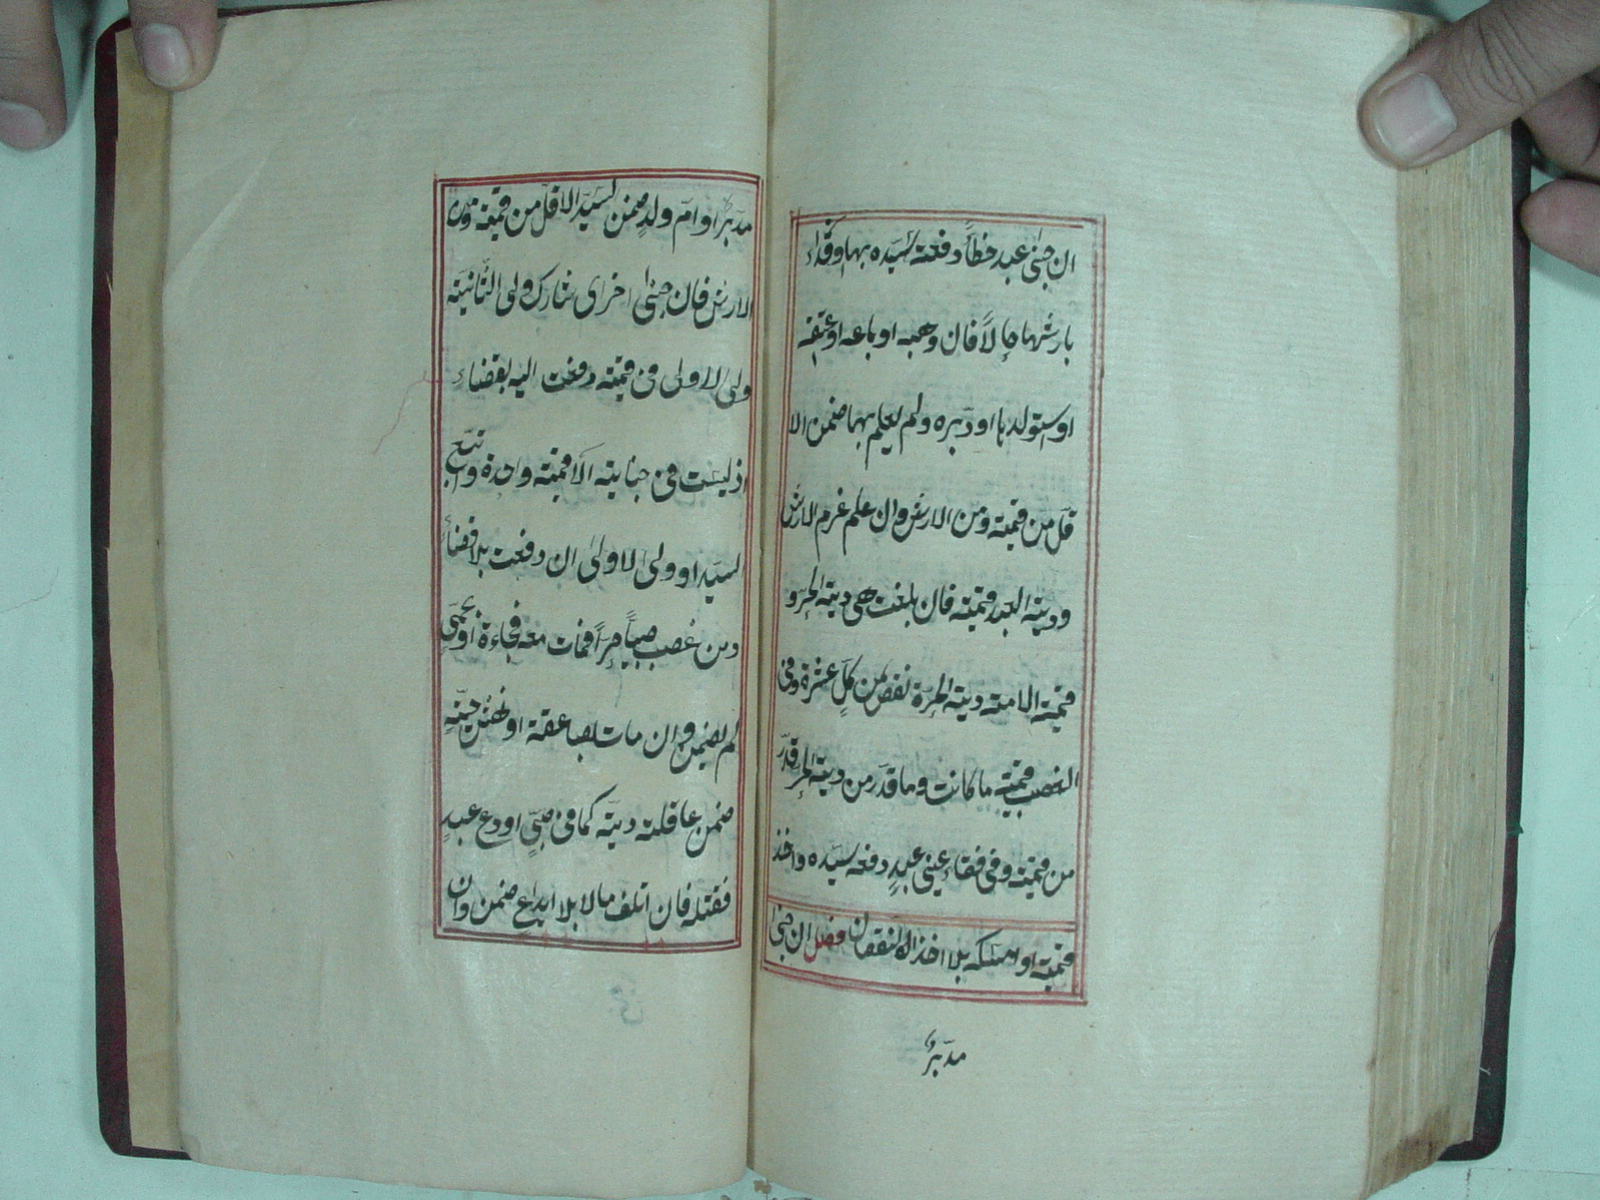 ان جنى عبد خطأ دفعه سيده بها او فداه
بارشها حالاً فان وهبه او باعه او عتقه
او استولدها او دبره ولم يعلم بها ضمن الا
قل من قيمته ومن الارش وان علم غرم الارش
ودية العبد قيمته فان بلغت هى دية الحر و
قيمة الامة دية الحرة نقص من كل عشرة وفى
الغصب قيمته ما كانت وما قدر من دية الحر قدر
من قيمته وفى فقاء عينى عبد دفعه سيده واخذ
قيمته او امسكه بلا اخذ النقصان فصل ان جنى
مدبر
مدبر او ام ولد ضمن السيد الاقل من قيمته ومن
الارش فان جنى اخرى شارك ولى الثانية
ولى الاولى فى قيمته دفعت اليه بقضاء
اذ ليست فى جناياته الا قيمة واحدة واتبع
السيد او ولى الاولى ان دفعت بلا قضاء
ومن غصب صبياً حراً فمات معه فجاءة او بحمى
لم يضمن وان مات بصاعقة او نهش حية
ضمن عاقلته ديته كما فى صبى اودع عبد
فقتله فان اتلف مالا بلا ايداع ضمن وان